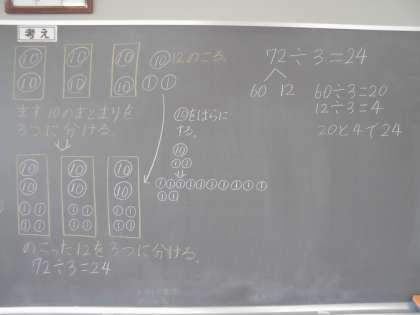 考え
⑩ ⑩ ⑩ ⑩ 12のこる。
⑩ ⑩ ⑩ ① ①
まず10のまとまりを
3つに分ける。
⑩をばらに
する。
⑩
① ①
① ① ① ① ① ① ① ① ① ①
① ①
⑩ ⑩ ⑩
⑩ ⑩ ⑩
① ① ① ① ① ①
① ① ① ① ① ①
のこった12を3つに分ける。
72÷3=24
72÷3=24
60 12
60÷3=20
12÷3=4
20と4で24